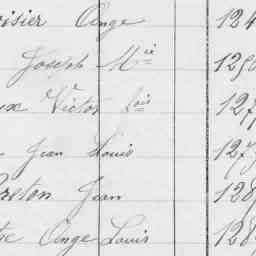 oisier Ange 124
Joseph Mie 1290
ux Victor fois 127
Jean Louis 127
reton Jean 128
Ange Louis 128